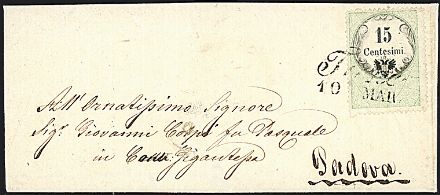 15
Centesimi
10
MAR
All' Ornatissimo Signore
Sig.r Giovanni fu Pasquale
in Gigantessa
Padova.